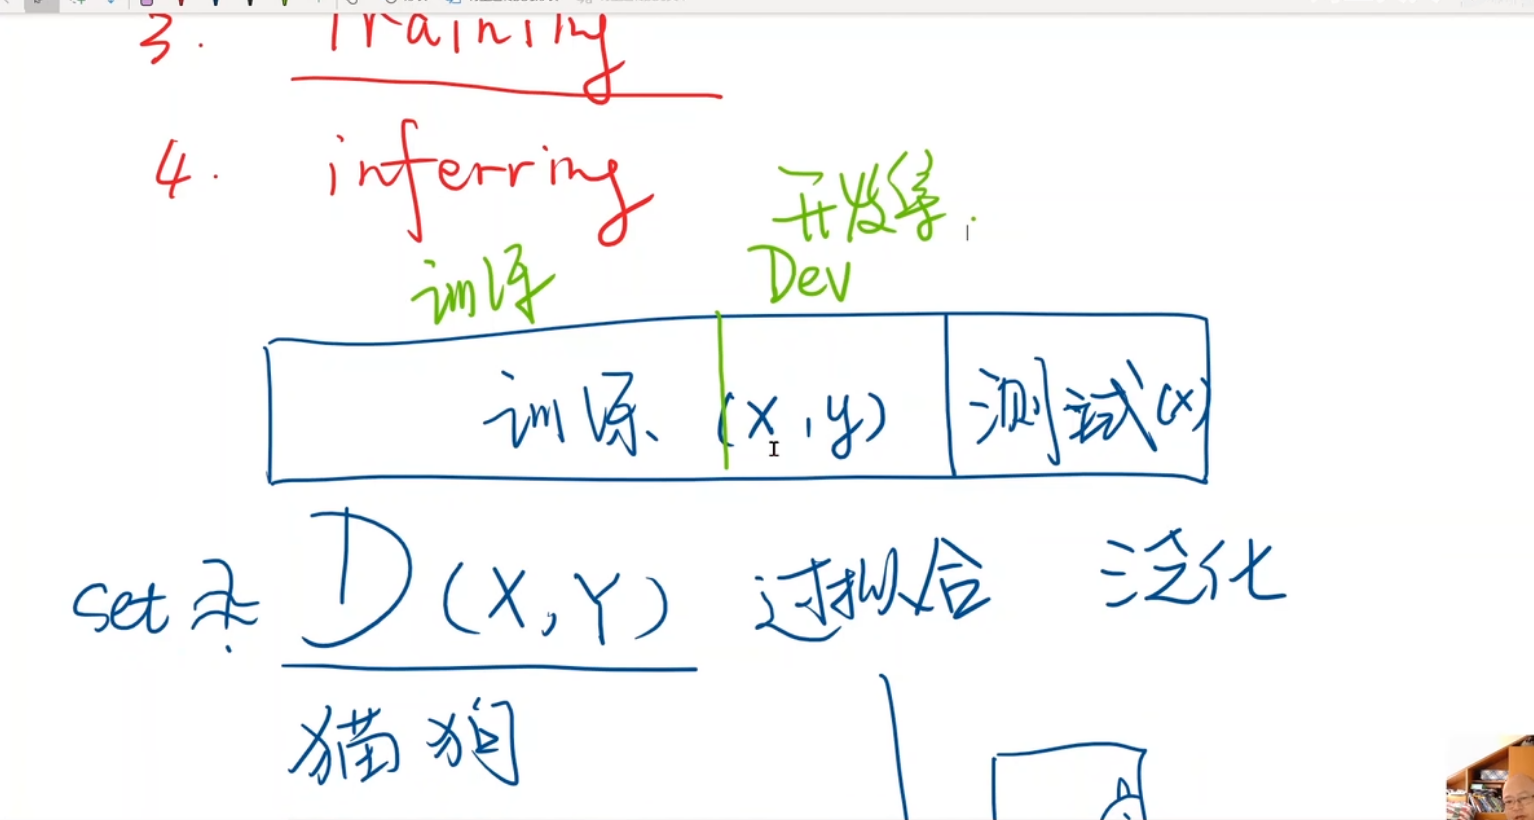 3. Training
4. inferring
开发集
训练 Dev
训练 (x, y) 测试(x)
set D (X, Y) 过拟合 泛化
猫 狗